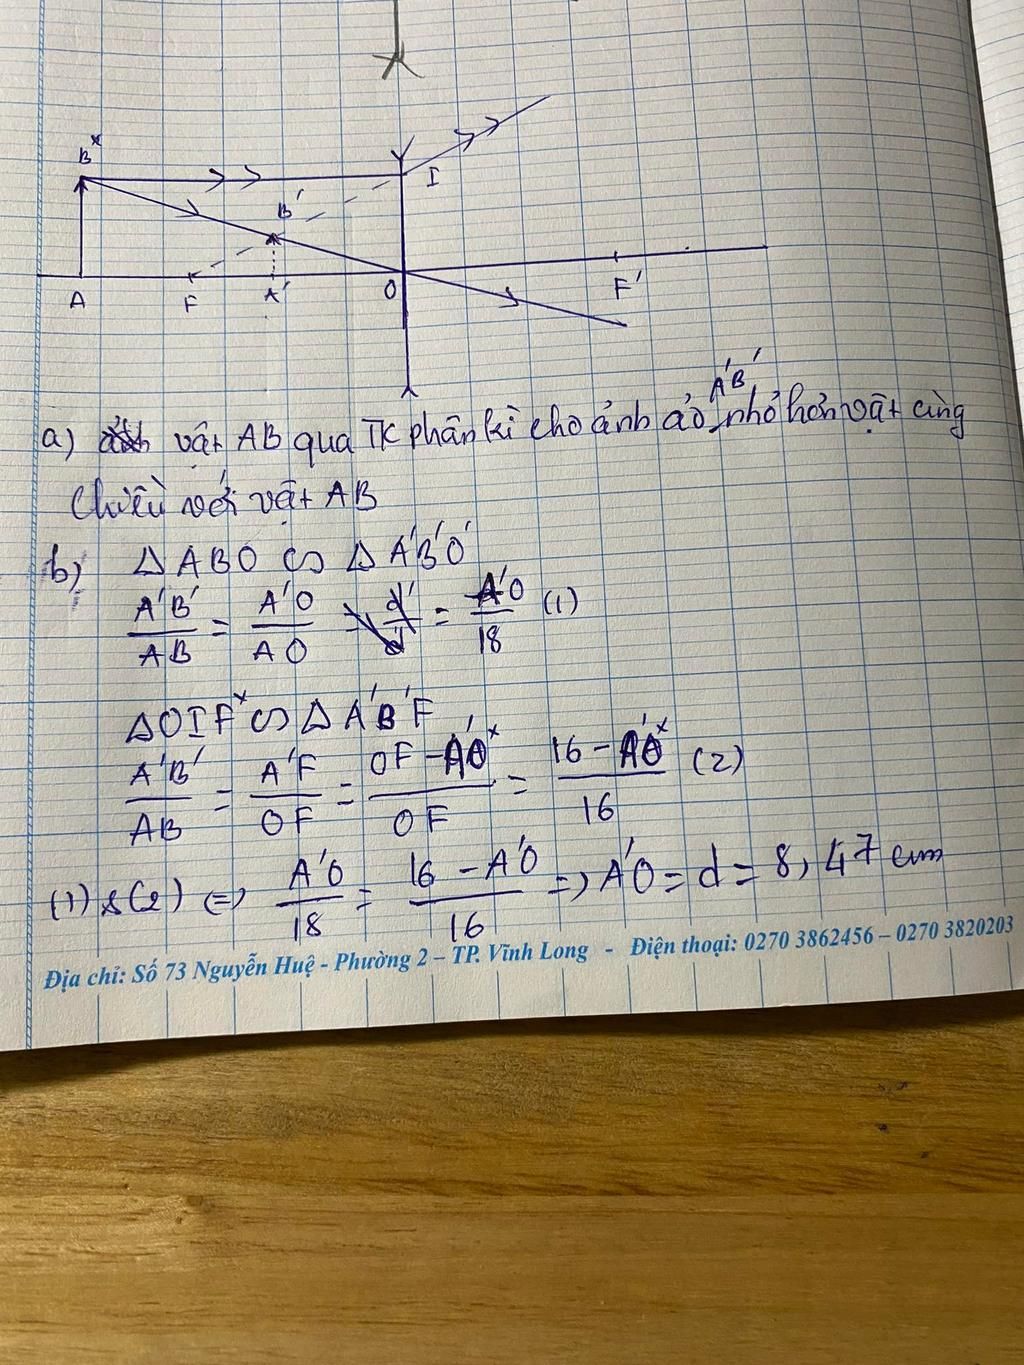 B
I
B'
A
F
A'
O
F'
A'B'
a) vật AB qua TK phân kì cho ảnh ảo nhỏ hơn vật cùng
Chiều với vật AB
b) Δ ABO ∽ Δ A'B'O'
A'B'/AB = A'O/AO = d'/d = A'O/18 (1)
ΔOIF ∽ Δ A'B'F
A'B'/AB = A'F/OF = OF - A'O/OF = 16 - A'O/16 (2)
(1) & (2) ⇔ A'O/18 = 16 - A'O/16 => A'O = d = 8,47 cm
Địa chỉ: Số 73 Nguyễn Huệ - Phường 2 – TP. Vĩnh Long - Điện thoại: 0270 3862456 – 0270 3820203